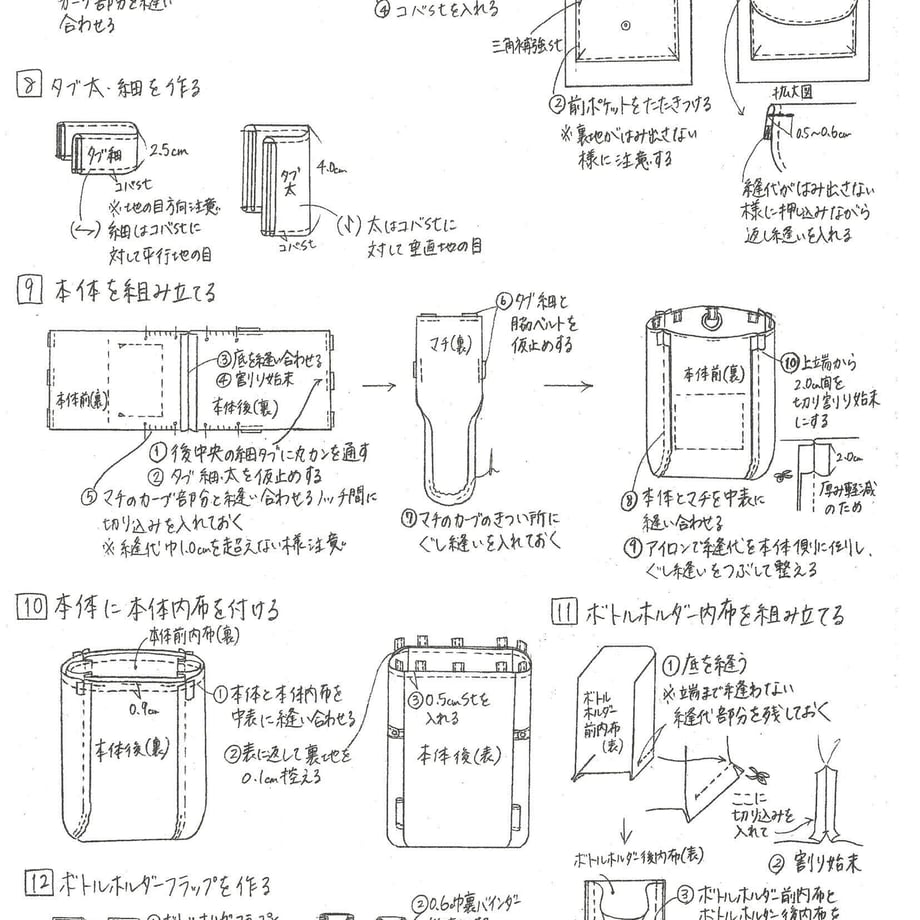 合わせる
④ コバstを入れる
三角補強st
②前ポケットをたたきつける
※裏地がはみ出さない
様に注意する
拡大図
0.5~0.6cm
縫代がはみ出さない
様に押し込みながら
返し縫いを入れる
8 タブ太・細を作る
タブ細
2.5cm
コバst
※地の目方向注意
(↔) 細はコバstに
対して平行地の目
タブ
太
4.0cm
コバst
太はコバstに
対して垂直地の目
9 本体を組み立てる
本体前(裏)
③底を縫い合わせる
④割り始末
本体後(裏)
①後中央の細タブに丸カンを通す
②タブ細・太を仮止めする
⑤マチのカーブ部分と縫い合わせるノッチ間に
切り込みを入れておく
※縫代巾1.0cmを超えない様注意
マチ(裏)
⑥タブ細と
脇ベルトを
仮止めする
⑦マチのカーブのきつい所に
ぐし縫いを入れておく
本体前(裏)
⑩上端から
2.0cm間を
切り割り始末
にする
2.0cm
厚み軽減
のため
⑧本体とマチを中表に
縫い合わせる
⑨アイロンで縫代を本体側に倒し、
ぐし縫いをつぶして整える
10 本体に本体内布を付ける
本体前内布(裏)
0.9cm
本体後(裏)
①本体と本体内布を
中表に縫い合わせる
②表に返して裏地を
0.1cm控える
③0.5cmstを
入れる
本体後(表)
11 ボトルホルダー内布を組み立てる
ボトル
ホルダー
前内布
(表)
①底を縫う
※端まで縫わない
縫代部分を残しておく
ここに
切り込みを
入れて
②割り始末
ボトルホルダー後内布(表)
③ボトルホルダー前内布と
ボトルホルダー後内布を
12 ボトルホルダーフラップを作る
②0.6巾裏バインダー